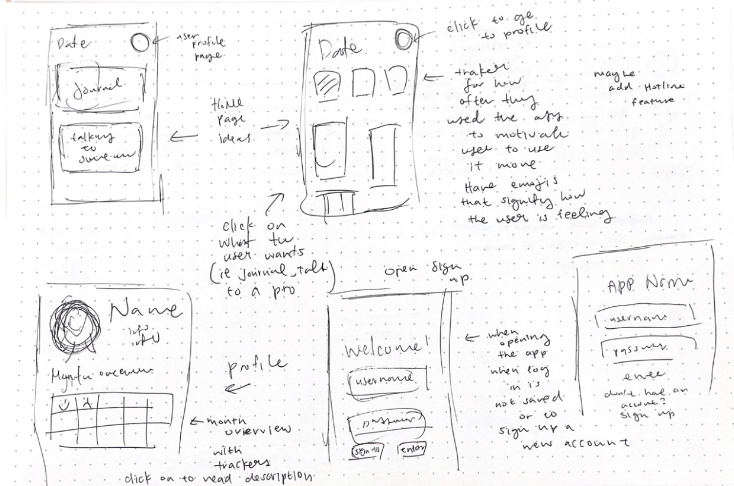 Date
user
profile
page
Journal
talking
to
someone
Home
page
ideas
Date
click to go
to profile
traker
for how
often they
used the app
to motivate
user to use
it more
Have emojis
that signify how
the user is feeling
maybe
add Hotline
feature
click on
what the
user wants
(ie journal, talk
to a pro)
Name
info
info
profile
month
overview
with
trackers
click on to read description
open sign
up
Welcome!
username
password
sign up
enter
when
opening
the app
when log
in is
not saved
or to
sign up a
new account
App Name
username
password
enter
don't have an
account?
sign up